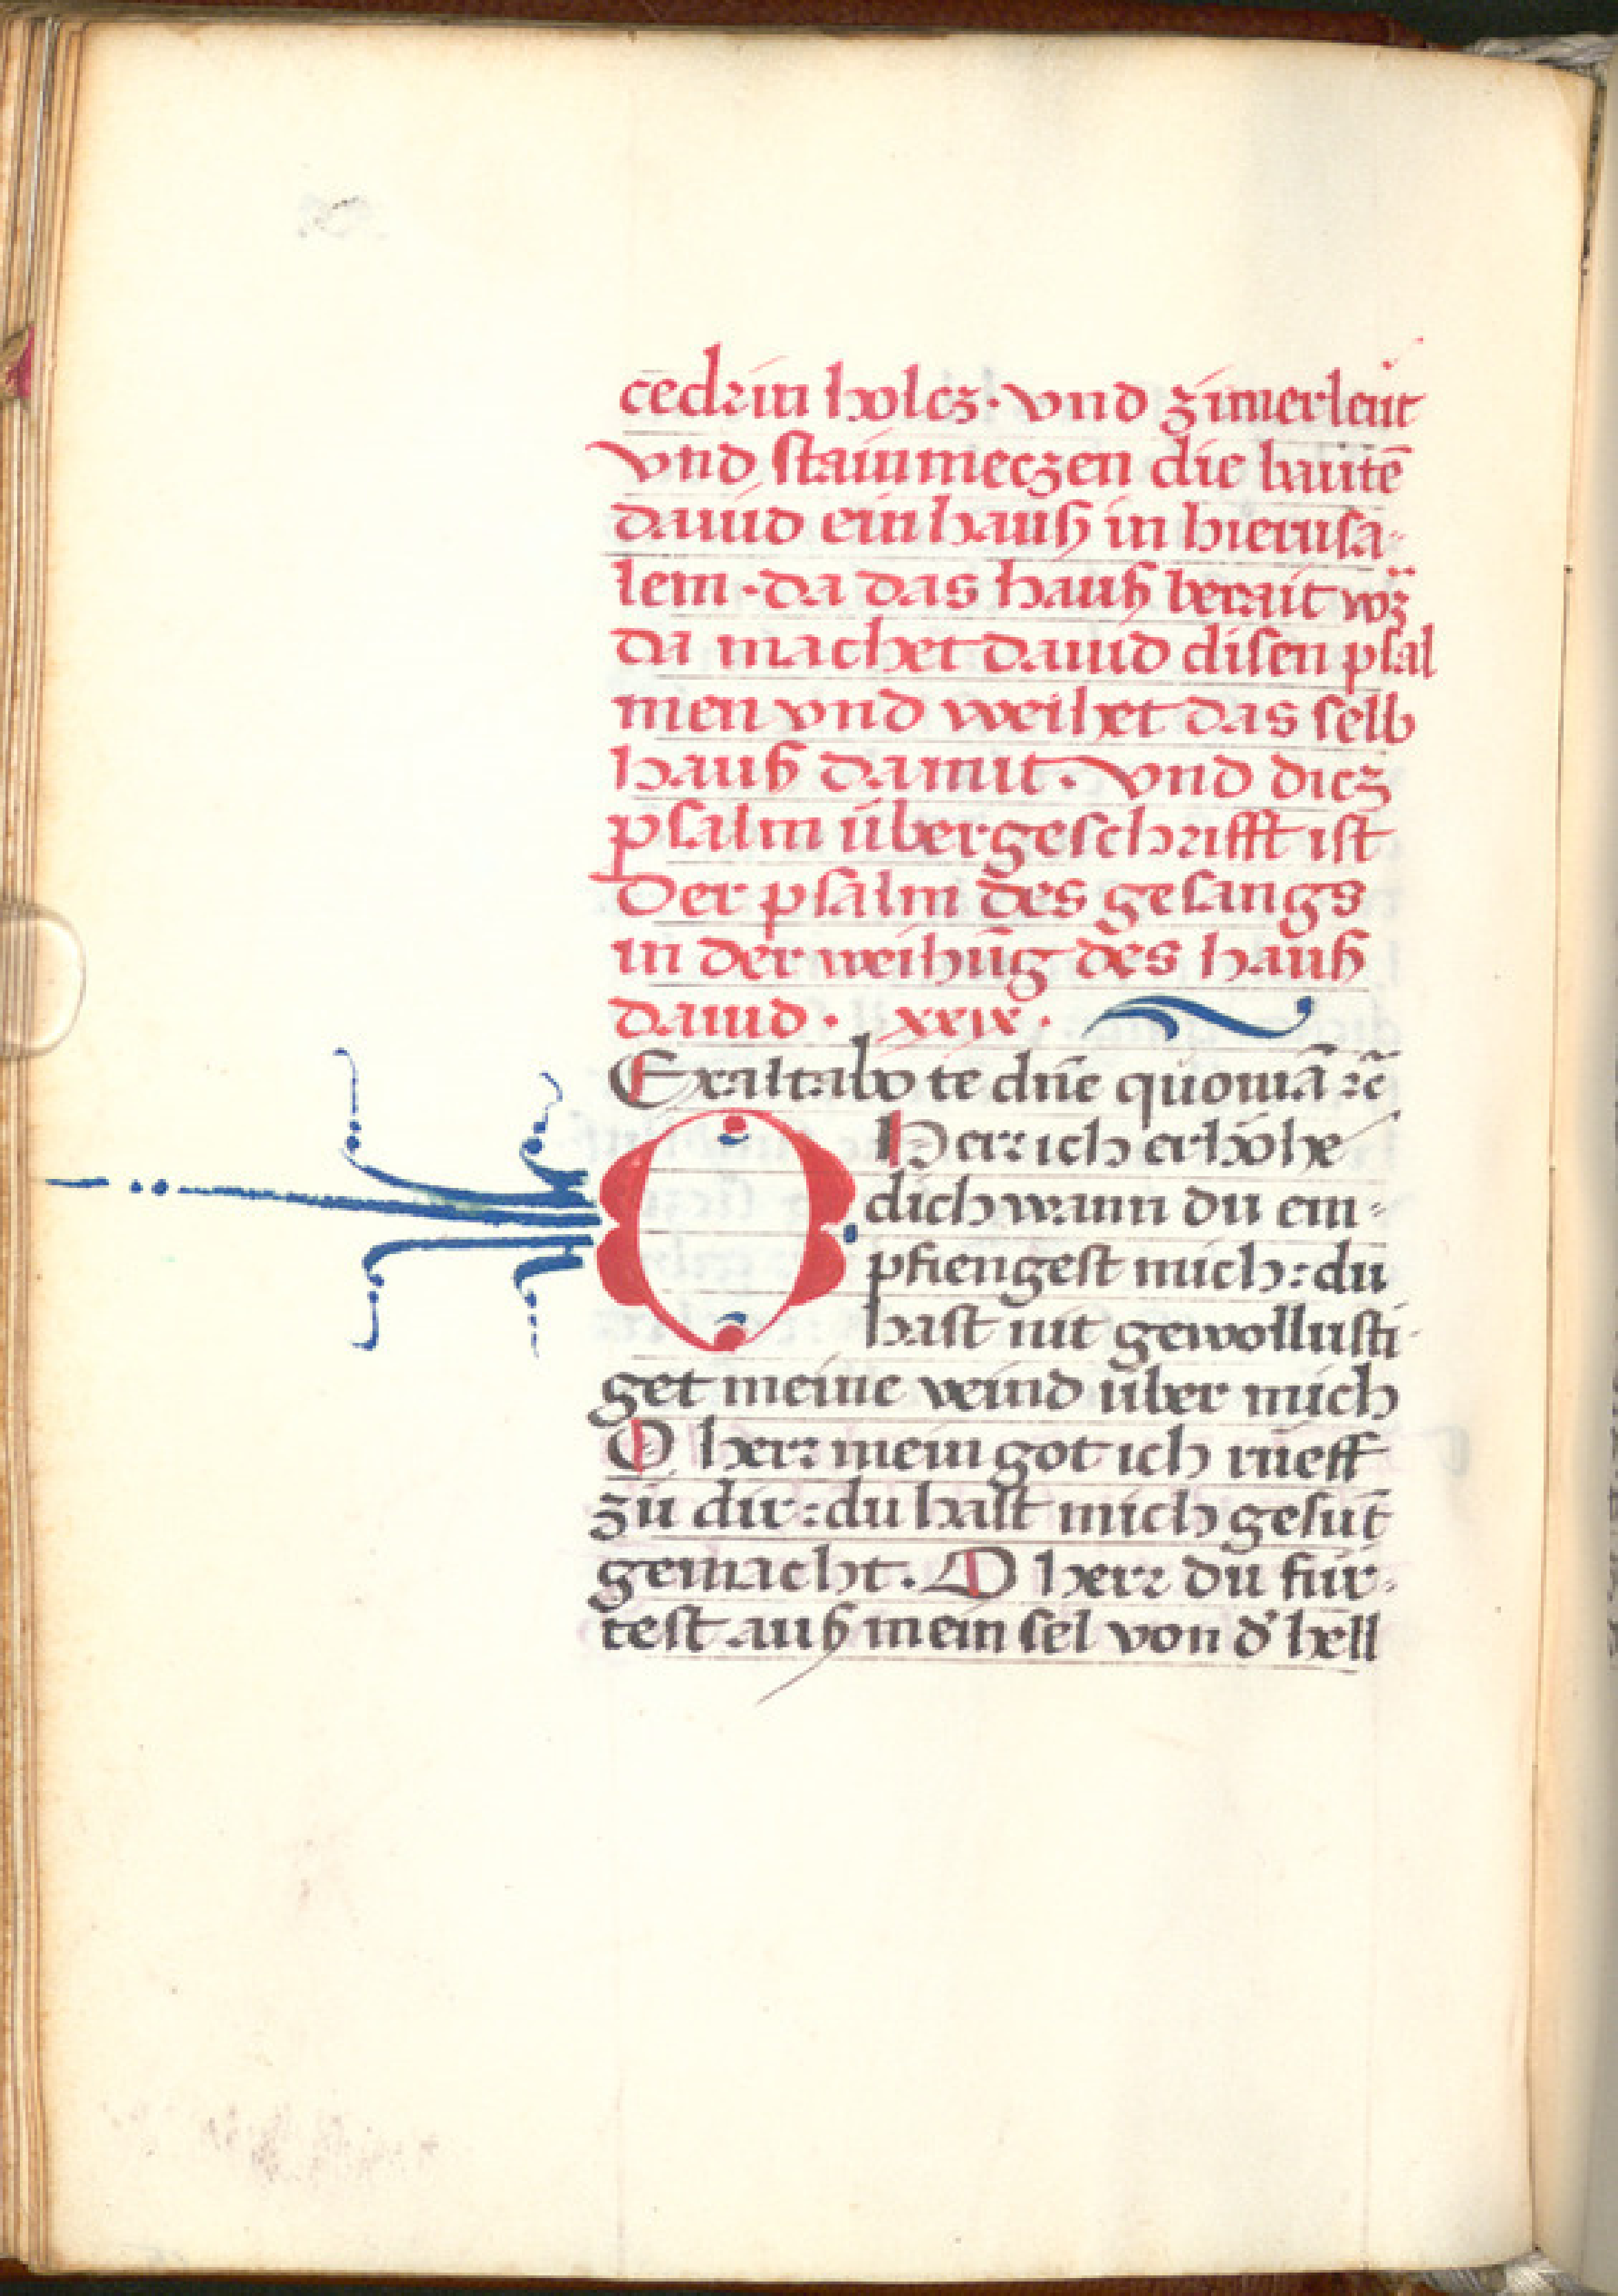 cedrin holcz · vnd zimerleut
vnd stainmeczen die bautē
dauid ein hauß in hierusa-
lem · da das hauß berait wz
da machet dauid disen psal
men vnd weihet das selb
hauß damit · vnd dicz
psalm übergeschrifft ist
Der psalm des gesangs
in der weihūg des hauß
dauid · xxix ·
Exaltabo te dn̄e quoniā ꝛc̄
O Herr ich erhöhe
dich wann du em-
pfiengest mich : du
hast nit gewollusti-
get meine veind über mich
O herr mein got ich rüeff
zü dir : du hast mich gesūt
gemacht. O herr du für-
test auß mein sel von d' hell